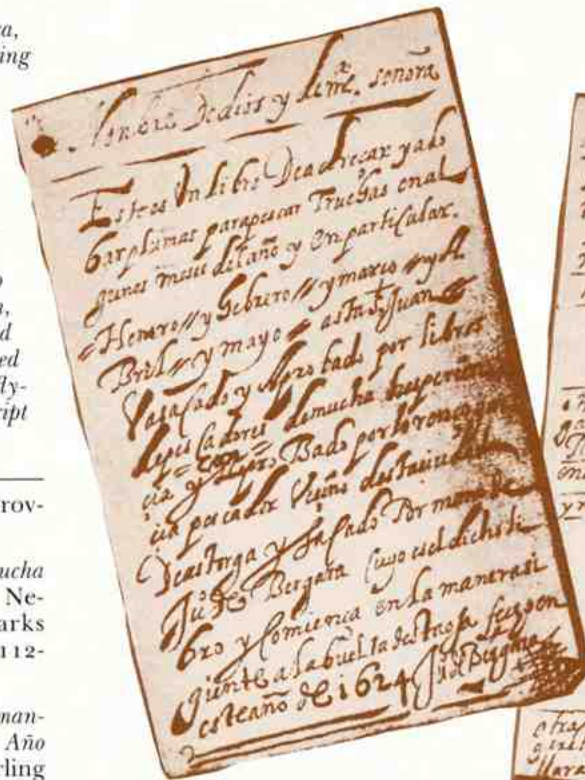 a,
ing
,
d
ed
ly-
ript
rov-
ucha
Ne-
arks
112-
nan-
Año
rling
Nonbre De dios y de nra. señora
Este es Un libro De aderecar y ado
bar plumas para pescar Truchas en al
gunos meses del año y en particular.
Henero // y febrero // y março // y A
Bril // y mayo // asta St Juan
Va sacado y Aprobado por libros
de pescadores de mucha esperien
cia y Apro Bado por lorenço gar
cia pescador Veçino desta ciudad
De astorga y sacado Por mano de
Juo de Bergara Cuyo es el dicho li
bro y Comienca en la manera si
guiente a la buelta desta oja fecho en
este año de 1624 Juo de Bergara